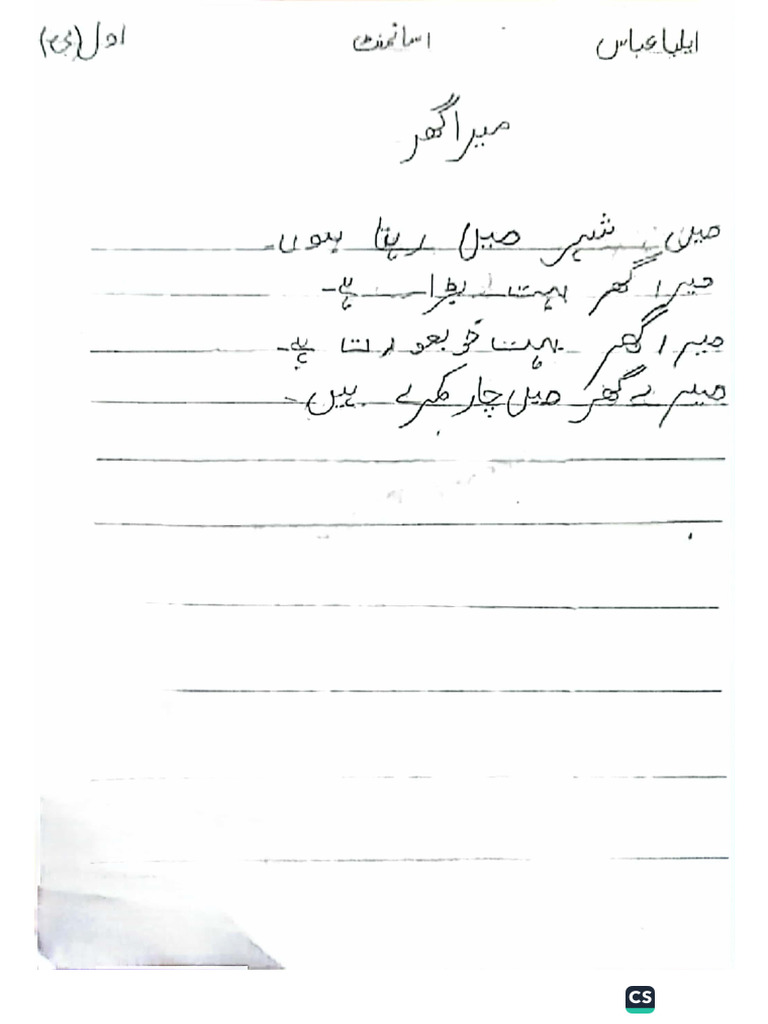 ایلیا عباس اسائمنٹ اول (بی)
میرا گھر
میں شہر میں رہتا ہوں۔
میرا گھر بہت بڑا ہے۔
میرا گھر بہت خوبصورت ہے۔
میرے گھر میں چار کمرے ہیں۔
CS